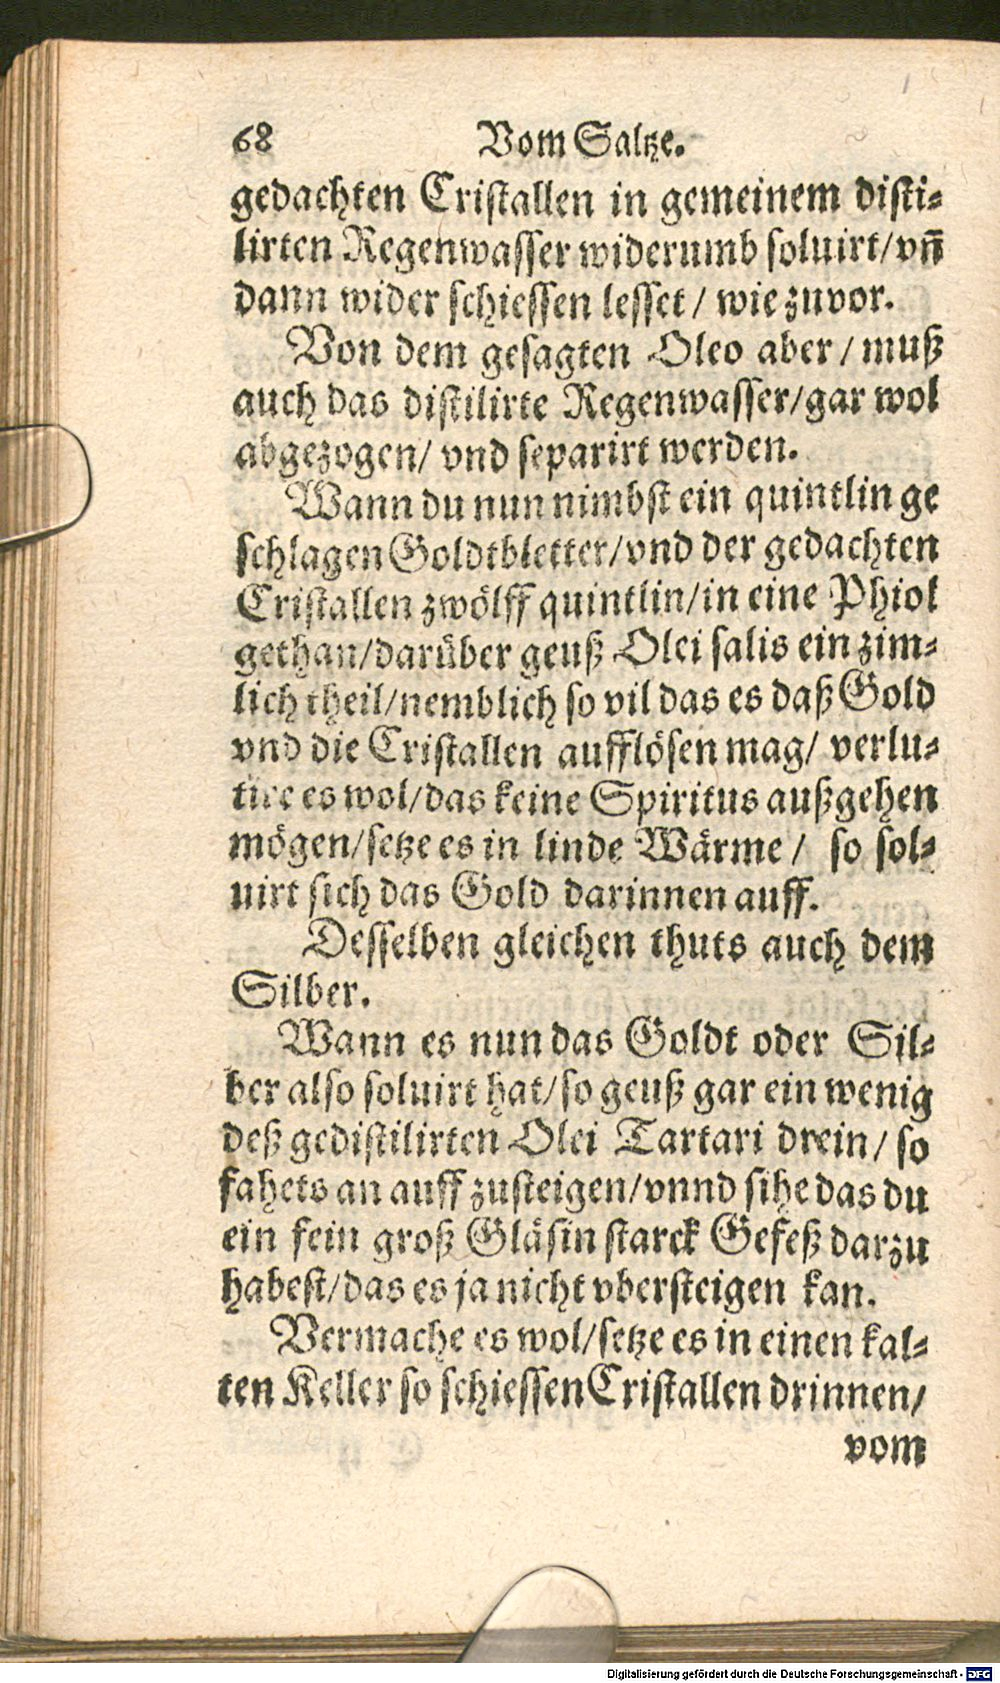 68 Vom Saltze.
gedachten Cristallen in gemeinem disti-
lirten Regenwasser widerumb soluirt/vñ
dann wider schiessen lesset / wie zuvor.
Von dem gesagten Oleo aber / muß
auch das distilirte Regenwasser/gar wol
abgezogen/ vnd separirt werden.
Wann du nun nimbst ein quintlin ge
schlagen Goldtbletter/vnd der gedachten
Cristallen zwölff quintlin/in eine Phiol
gethan/darüber geuß Olei salis ein zim-
lich theil/nemblich so vil das es daß Gold
vnd die Cristallen aufflösen mag/ verlu-
tire es wol/das keine Spiritus außgehen
mögen/setze es in linde Wärme / so sol-
uirt sich das Gold darinnen auff.
Desselben gleichen thuts auch dem
Silber.
Wann es nun das Goldt oder Sil-
ber also soluirt hat/so geuß gar ein wenig
deß gedistilirten Olei Tartari drein/ so
fahets an auff zusteigen/vnnd sihe das du
ein fein groß Gläsin starck Gefeß darzu
habest/das es ja nicht vbersteigen kan.
Vermache es wol/setze es in einen kal-
ten Keller so schiessen Cristallen drinnen/
vom
Digitalisierung gefördert durch die Deutsche Forschungsgemeinschaft - DFG